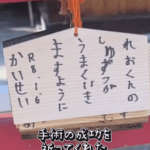 れおくんの
しゅずつが
うまくいき
ますように
R8.1.6
かいせい
手術の成功を
祈ってくれた